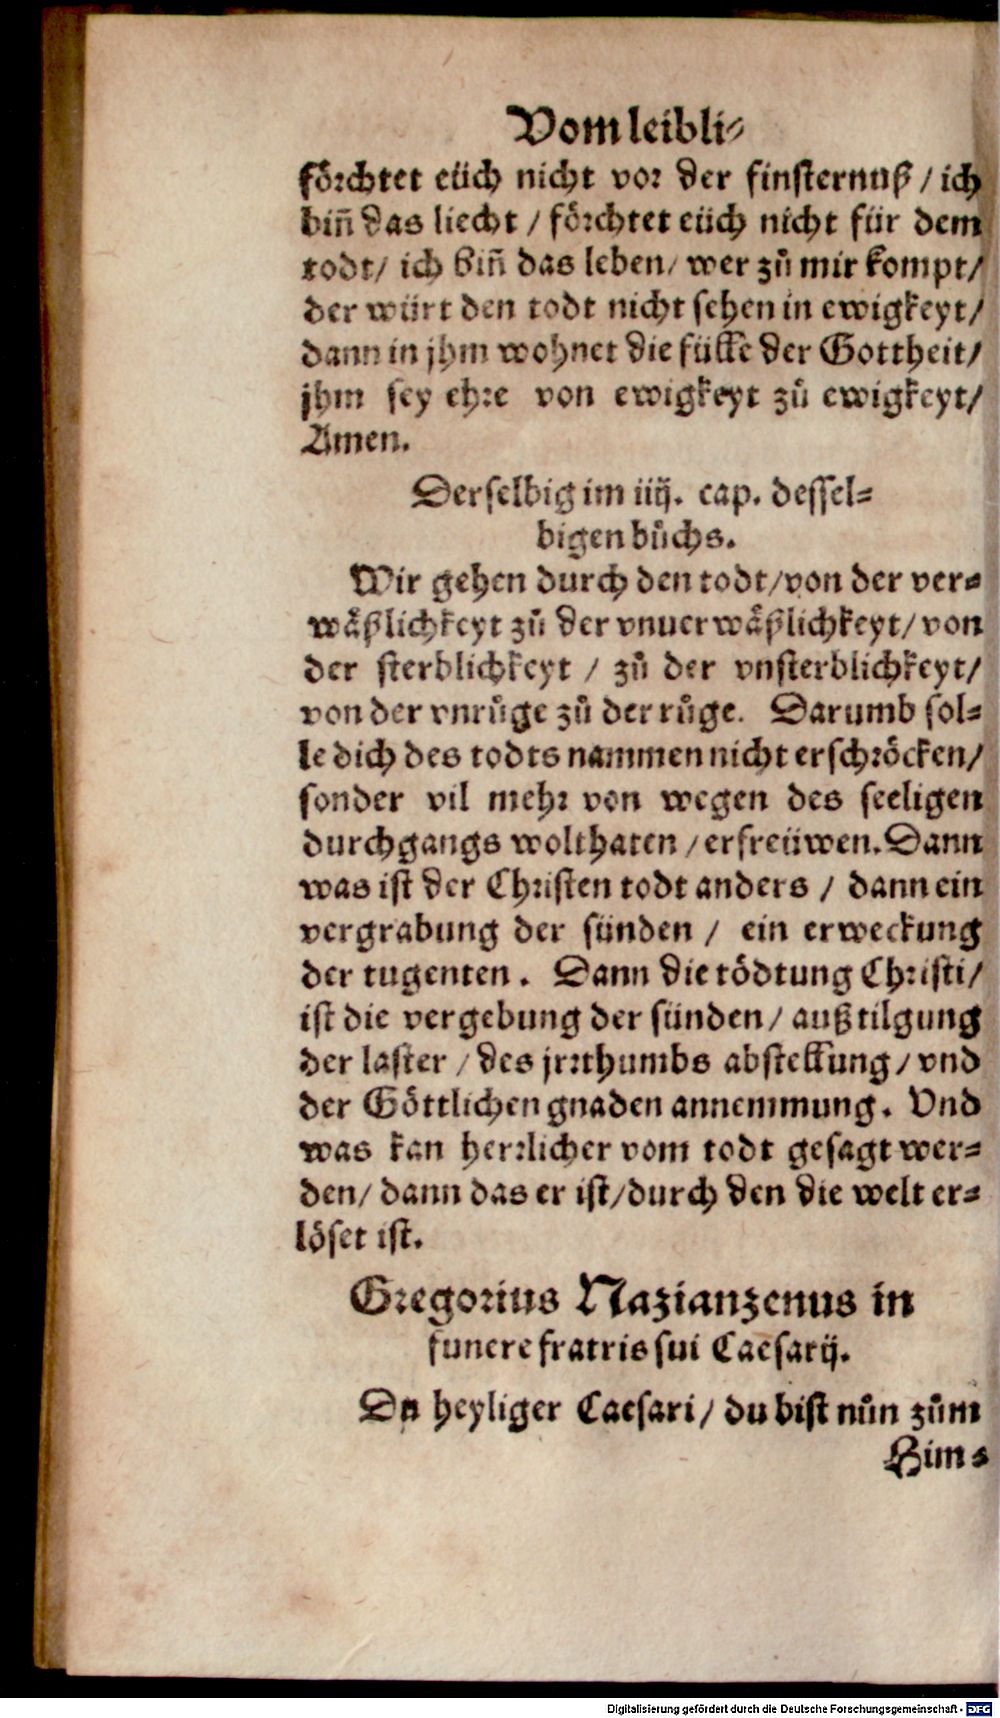 Vom leibli⸗
förchtet eüch nicht vor der finsternuß / ich
biñ das liecht / förchtet eüch nicht für dem
todt / ich biñ das leben / wer zů mir kompt /
der würt den todt nicht sehen in ewigkeyt /
dann in jhm wohnet die fülle der Gottheit /
jhm sey ehre von ewigkeyt zů ewigkeyt /
Amen.
Derselbig im iiij. cap. dessel⸗
bigen bůchs.
Wir gehen durch den todt / von der ver⸗
wäßlichkeyt zů der vnuerwäßlichkeyt / von
der sterblichkeyt / zů der vnsterblichkeyt /
von der vnrůge zů der růge. Darumb sol⸗
le dich des todts nammen nicht erschröcken /
sonder vil mehr von wegen des seeligen
durchgangs wolthaten / erfreüwen. Dann
was ist der Christen todt anders / dann ein
vergrabung der sünden / ein erweckung
der tugenten. Dann die tödtung Christi /
ist die vergebung der sünden / außtilgung
der laster / des jrrthumbs abstellung / vnd
der Göttlichen gnaden annemmung. Vnd
was kan herrlicher vom todt gesagt wer⸗
den / dann das er ist / durch den die welt er⸗
löset ist.
Gregorius Nazianzenus in
funere fratris sui Caesarij.
Du heyliger Caesari / du bist nůn zům
Him⸗
Digitalisierung gefördert durch die Deutsche Forschungsgemeinschaft - DFG